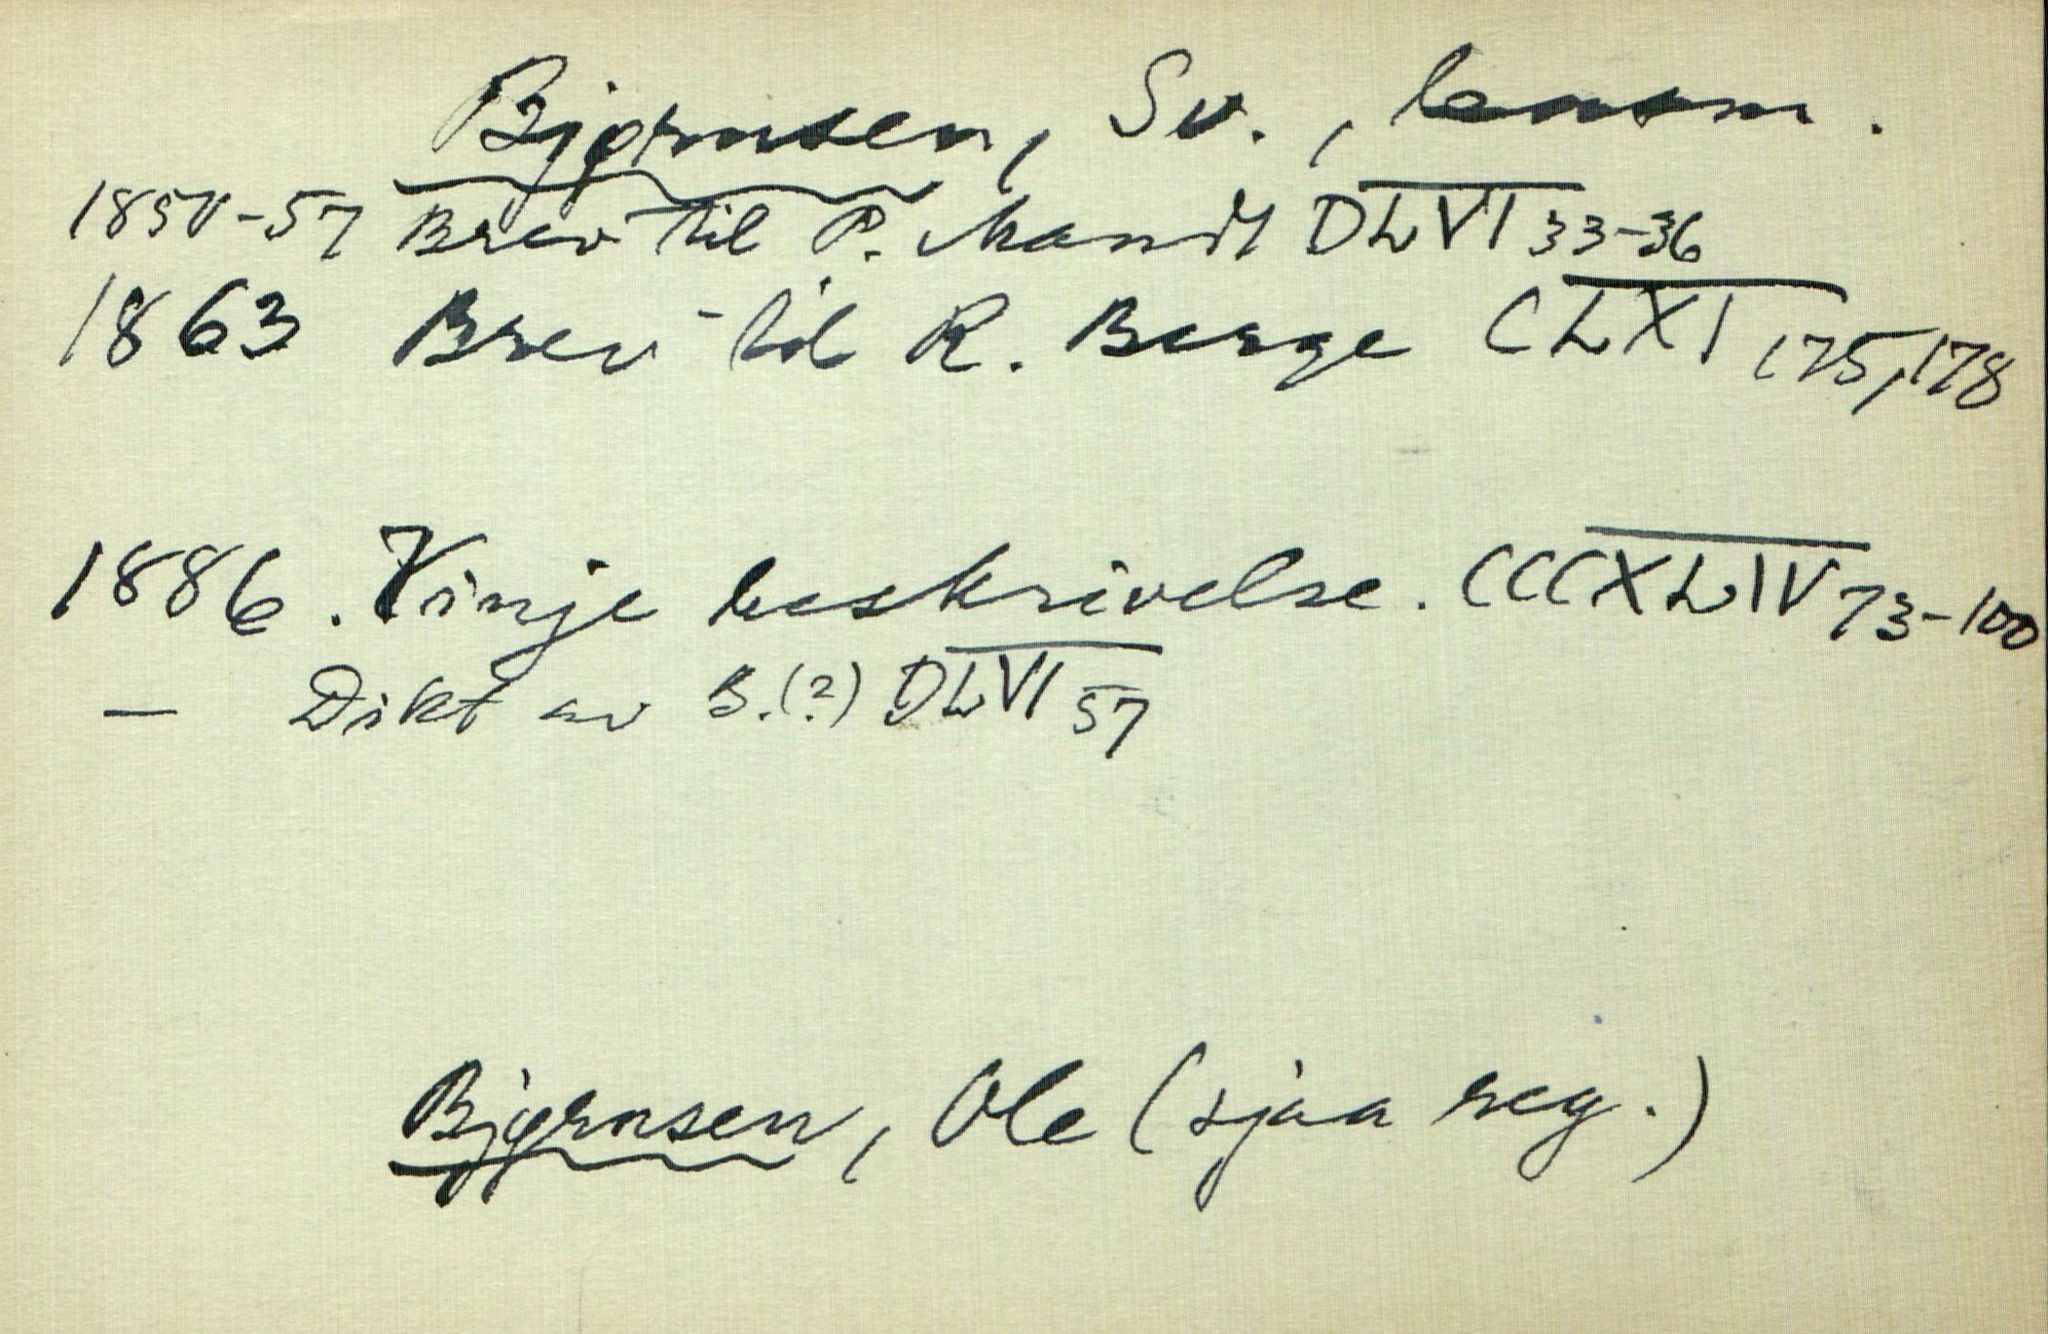 Bjørnsen, Sv., lensm.
1850-57 Brev til P. Mandt DLVI 33-36
1863 Brev til R. Berge CLXI 175, 178
1886. Vinje beskrivelse. CCCXLIV 73-100
— Dikt av B. (?) DLVI 57
Bjørnsen, Ole (sjaa reg.)